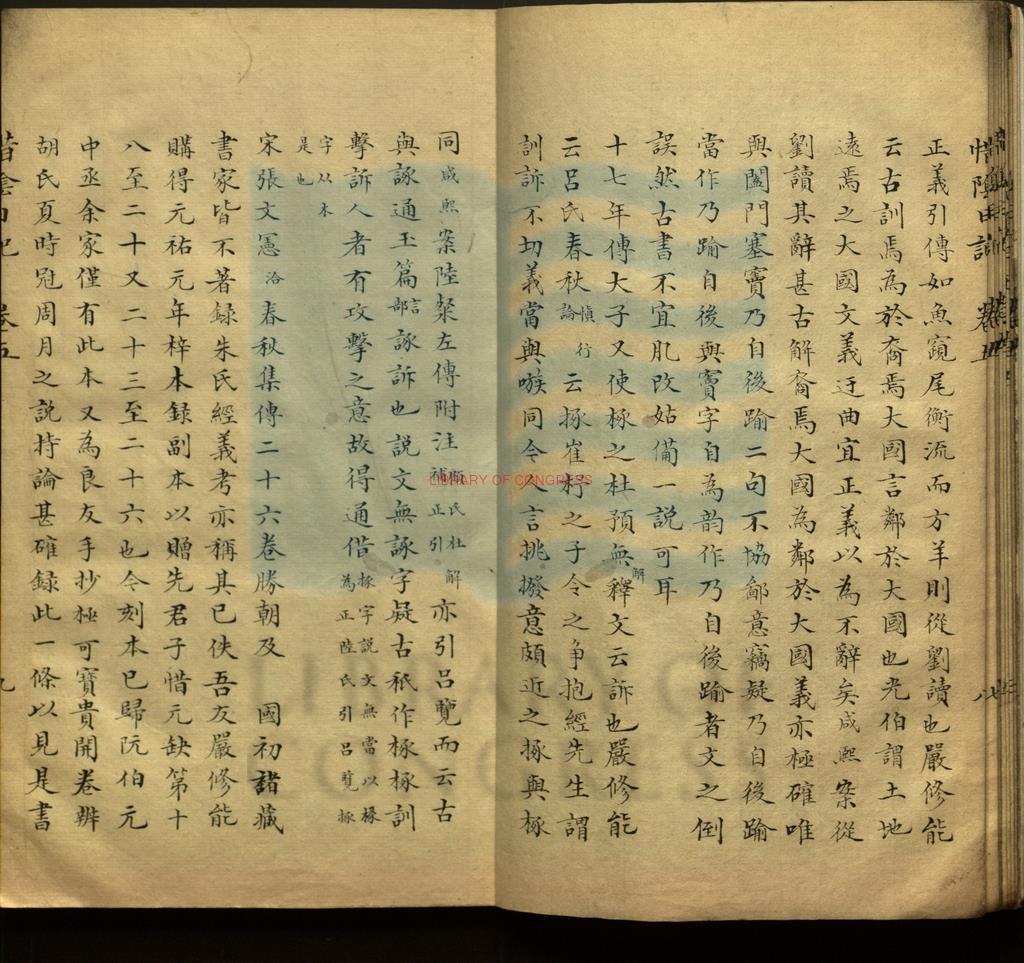 惜陰日記 卷五 八
正義引傳如魚竀尾衡流而方羊則從劉讀也嚴修能
云古訓焉為於裔焉大國言鄰於大國也光伯謂土地
遠焉之大國文義迂曲宜正義以為不辭矣咸熙案從
劉讀其辭甚古解裔焉大國為鄰於大國義亦極確唯
與闔門塞竇乃自後踰二句不協鄙意竊疑乃自後踰
當作乃踰自後與竇字自為韵作乃自後踰者文之倒
誤然古書不宜肊改姑備一說可耳
十七年傳大子又使椓之杜預無解釋文云訴也嚴修能
云呂氏春秋慎行論云㧻崔杼之子令之争抱經先生謂
訓訴不切義當與嗾同今人言挑撥意頗近之㧻與椓
同咸熙案陸粲左傳附注補正引杜解亦引呂覽而云古
與諑通玉篇言部諑訴也說文無諑字疑古衹作椓椓訓
擊訴人者有攻擊之意故得通借㧻字說文無當以椓為正陸氏引呂覽㧻
字从木是也
宋張文憲洽春秋集傳二十六卷勝朝及 國初諸藏
書家皆不著録朱氏經義考亦稱其已佚吾友嚴修能
購得元祐元年梓本録副本以贈先君子惜元缺第十
八至二十又二十三至二十六也今刻本已歸阮伯元
中丞余家僅有此本又為良友手抄極可寶貴開卷辨
胡氏夏時冠周月之說持論甚確録此一條以見是書
惜陰日記 卷五 九
LIBRARY OF CONGRESS